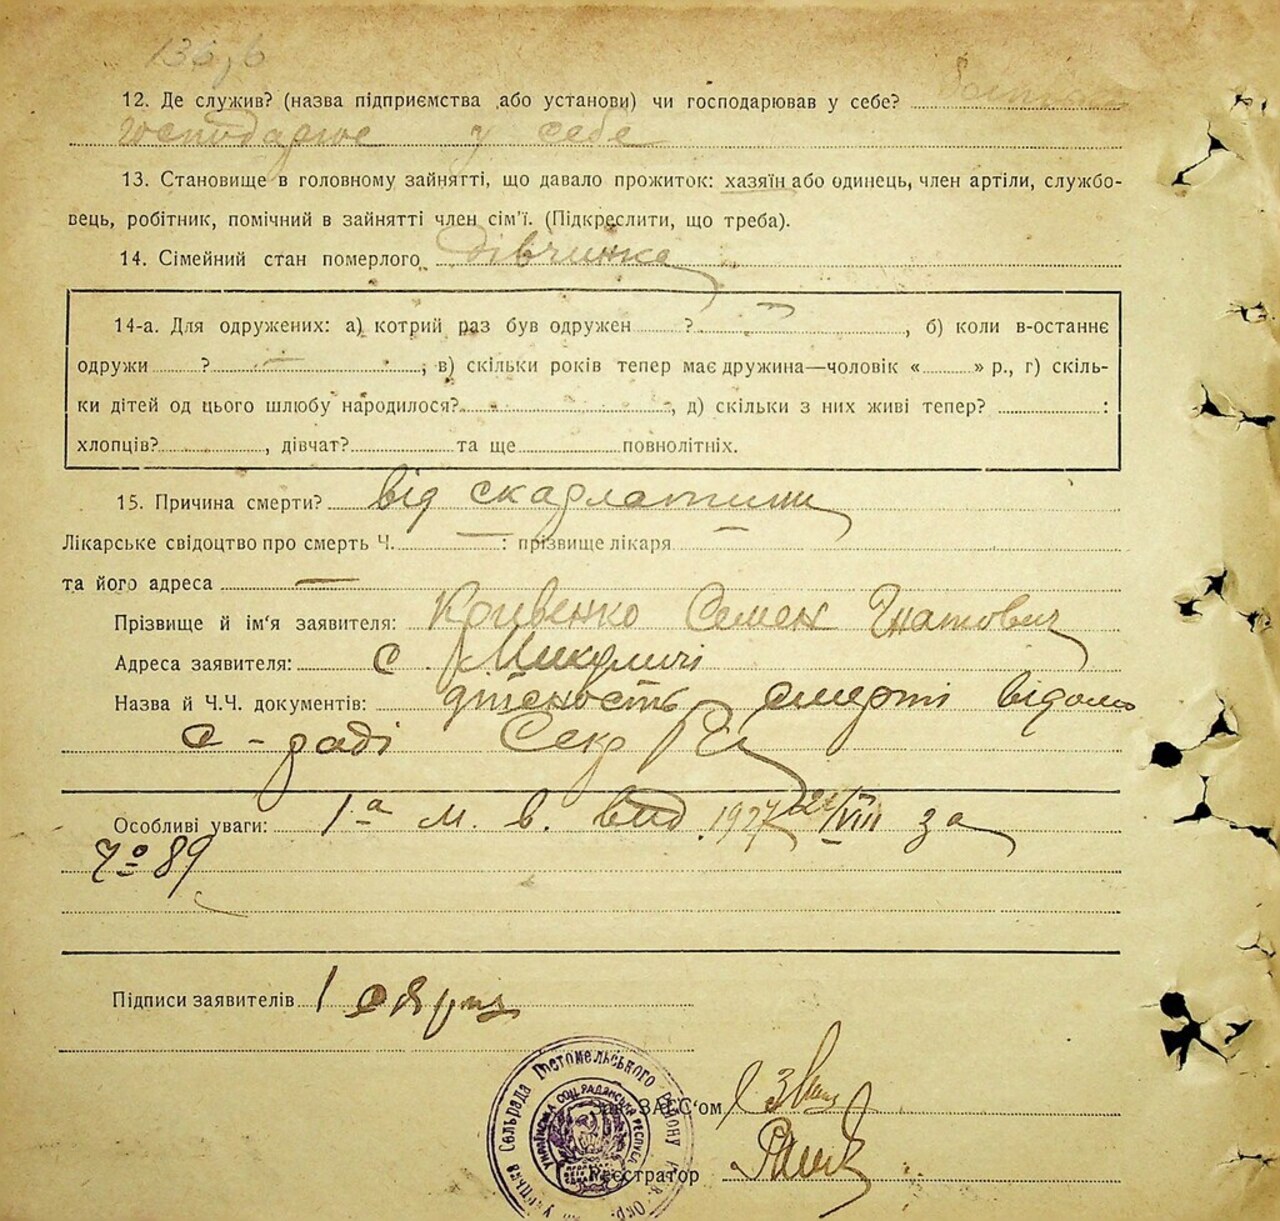 136, б
12. Де служив? (назва підприємства або установи) чи господарював у себе?
господарює у себе
13. Становище в головному зайнятті, що давало прожиток: хазяїн або одинець, член артіли, службо-
вець, робітник, помічний в зайнятті член сім'ї. (Підкреслити, що треба).
14. Сімейний стан померлого дівчинка
14-а. Для одружених: а) котрий раз був одружен ? , б) коли в-останнє
одружи ? ; в) скільки років тепер має дружина—чоловік « » р., г) скіль-
ки дітей од цього шлюбу народилося? , д) скільки з них живі тепер? :
хлопців? , дівчат? та ще повнолітніх.
15. Причина смерти? від скарлатини
Лікарське свідоцтво про смерть Ч. — : прізвище лікаря —
та його адреса —
Прізвище й ім'я заявителя: Кривенко Семен Гнатович
Адреса заявителя: с Микуличі
Назва й Ч.Ч. документів: дтсность смерті відомо
с-раді Секр
Особливі уваги: 1а м. в. вид. 1927 /VIII за
№ 89
Підписи заявителів
Сельрада Гостомельського району
Українська Соц. Радянська Республ
Зав. ЗАГС'ом
Реєстратор